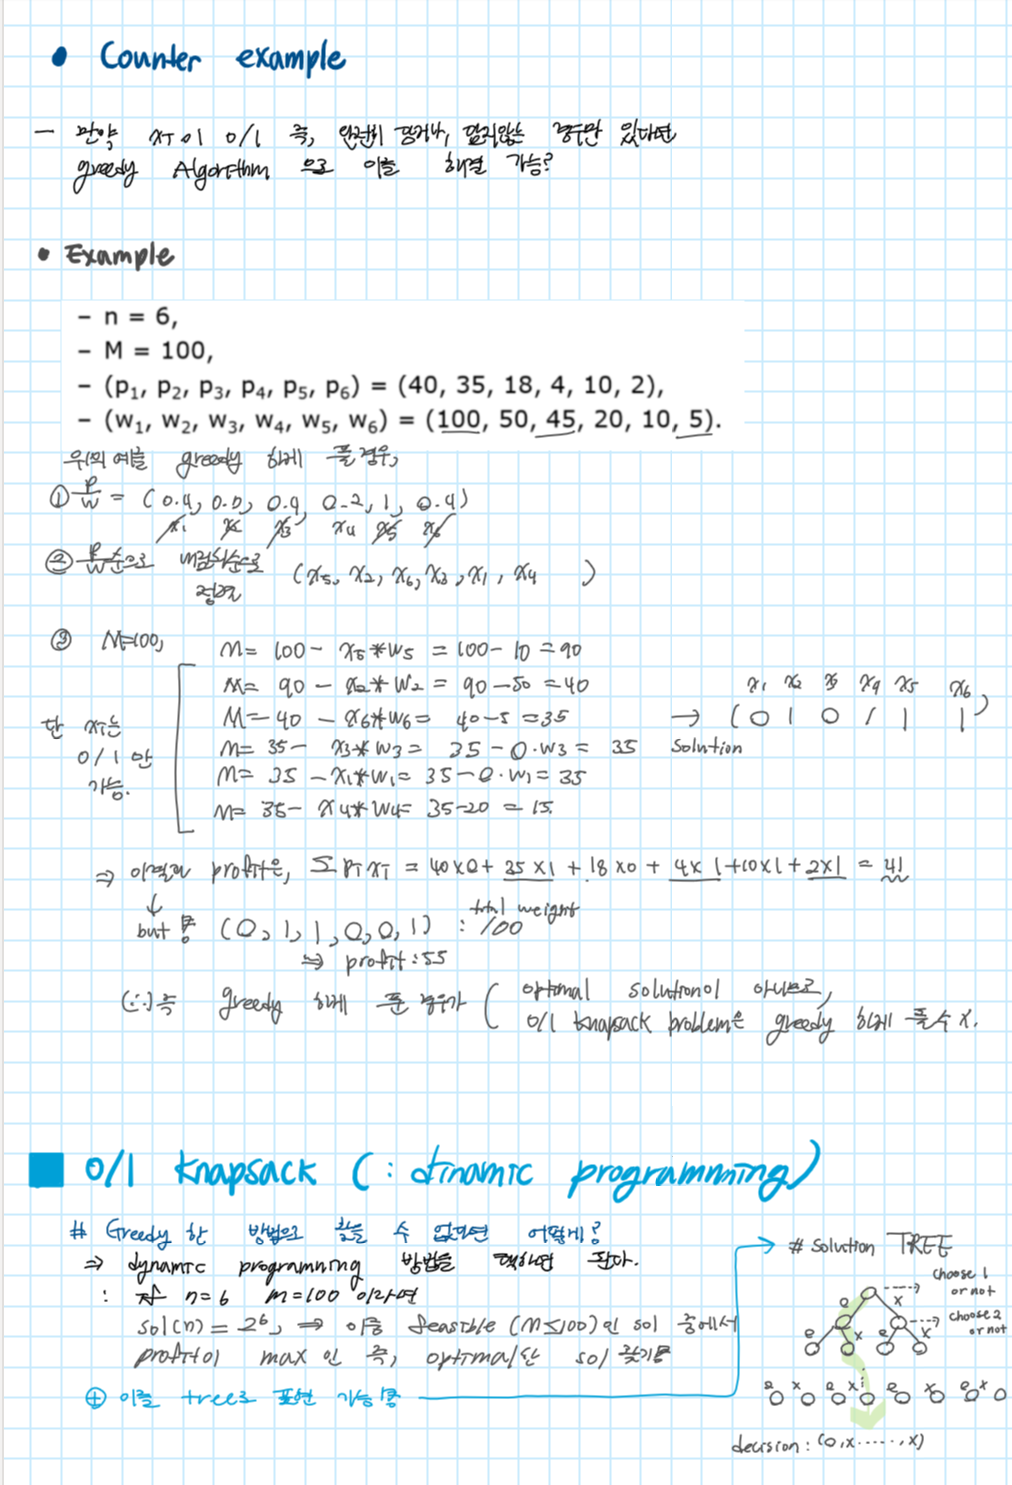 • Counter example
- 만약 xi 이 0/1 즉, 완전히 담거나, 담지않는 경우만 있다면
greedy Algorithm 으로 이를 해결 가능?
• Example
- n = 6,
- M = 100,
- (p₁, p₂, p₃, p₄, p₅, p₆) = (40, 35, 18, 4, 10, 2),
- (w₁, w₂, w₃, w₄, w₅, w₆) = (100, 50, 45, 20, 10, 5).
위의 예를 greedy 하게 풀 경우,
① p/w = (0.4, 0.7, 0.4, 0.2, 1, 0.4)
x₁ x₂ x₃ x₄ x₅ x₆
② p/w 순으로 내림차순으로 정렬 (x₅, x₂, x₆, x₃, x₁, x₄ )
③ M=100,
단 xi는 0/1 만 가능.
M= 100 - x₅*w₅ = 100-10 = 90
M= 90 - x₂*w₂ = 90-50 = 40
M= 40 - x₆*w₆ = 40-5 = 35
M= 35 - x₃*w₃ = 35-0·w₃ = 35
M= 35 - x₁*w₁ = 35-0·w₁ = 35
M= 35 - x₄*w₄ = 35-20 = 15.
x₁ x₂ x₃ x₄ x₅ x₆
→ (0 1 0 1 1 1)
solution
⇒ 이럴때 profit은, Σ pi xi = 40x0 + 35x1 + 18x0 + 4x1 + 10x1 + 2x1 = 41
↓
but (0, 1, 1, 0, 0, 1) : total weight 100
⇒ profit : 55
(∴) 즉 greedy 하게 푼 경우가 ( optimal solution이 아니므로,
0/1 knapsack problem은 greedy 하게 풀 수 X.
■ 0/1 knapsack (: dinamic programming)
# Greedy 한 방법으로 찾을 수 없다면 어떻게?
⇒ dynamic programming 방법을 택하면 된다.
: 즉 n=6 m=100 이라면
sol(n) = 2⁶, ⇒ 이중 feasible (M≤100)인 sol 중에서
profit이 max 인 즉, optimal한 sol 찾기
⊕ 이를 tree로 표현 가능
# solution TREE
choose 1 or not
choose 2 or not
o x
o x o x
o x o x o x o x
decision : (o, x ······ , x)